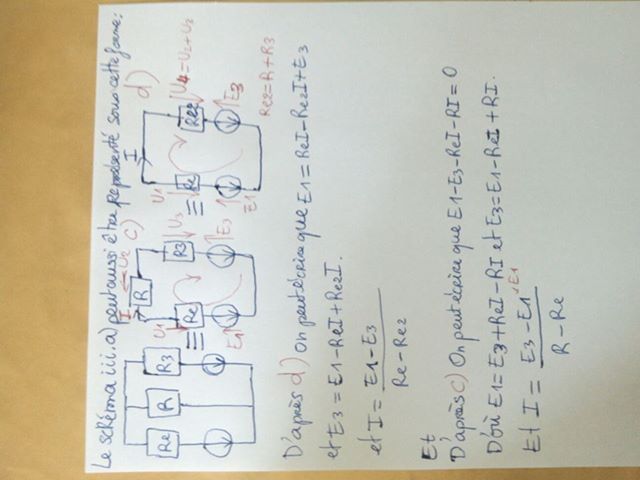 Le schéma iii.a) peut aussi être représenté sous cette forme:
Re R R3
≡
U1 I R U2 c)
Re R3 U3
E1 E3
≡
I d)
U1 Re Re2 U4=U2+U2
E1 E3
Re2=R+R3
D'après d) On peut écrire que E1=ReI-Re2I+E3
et E3=E1-ReI+Re2I.
et I= E1-E3
Re-Re2
Et
D'après c) On peut écrire que E1-E3-ReI-RI=0
D'où E1=E3+ReI-RI et E3=E1-ReI+RI.
Et I = E3-E1
R-Re